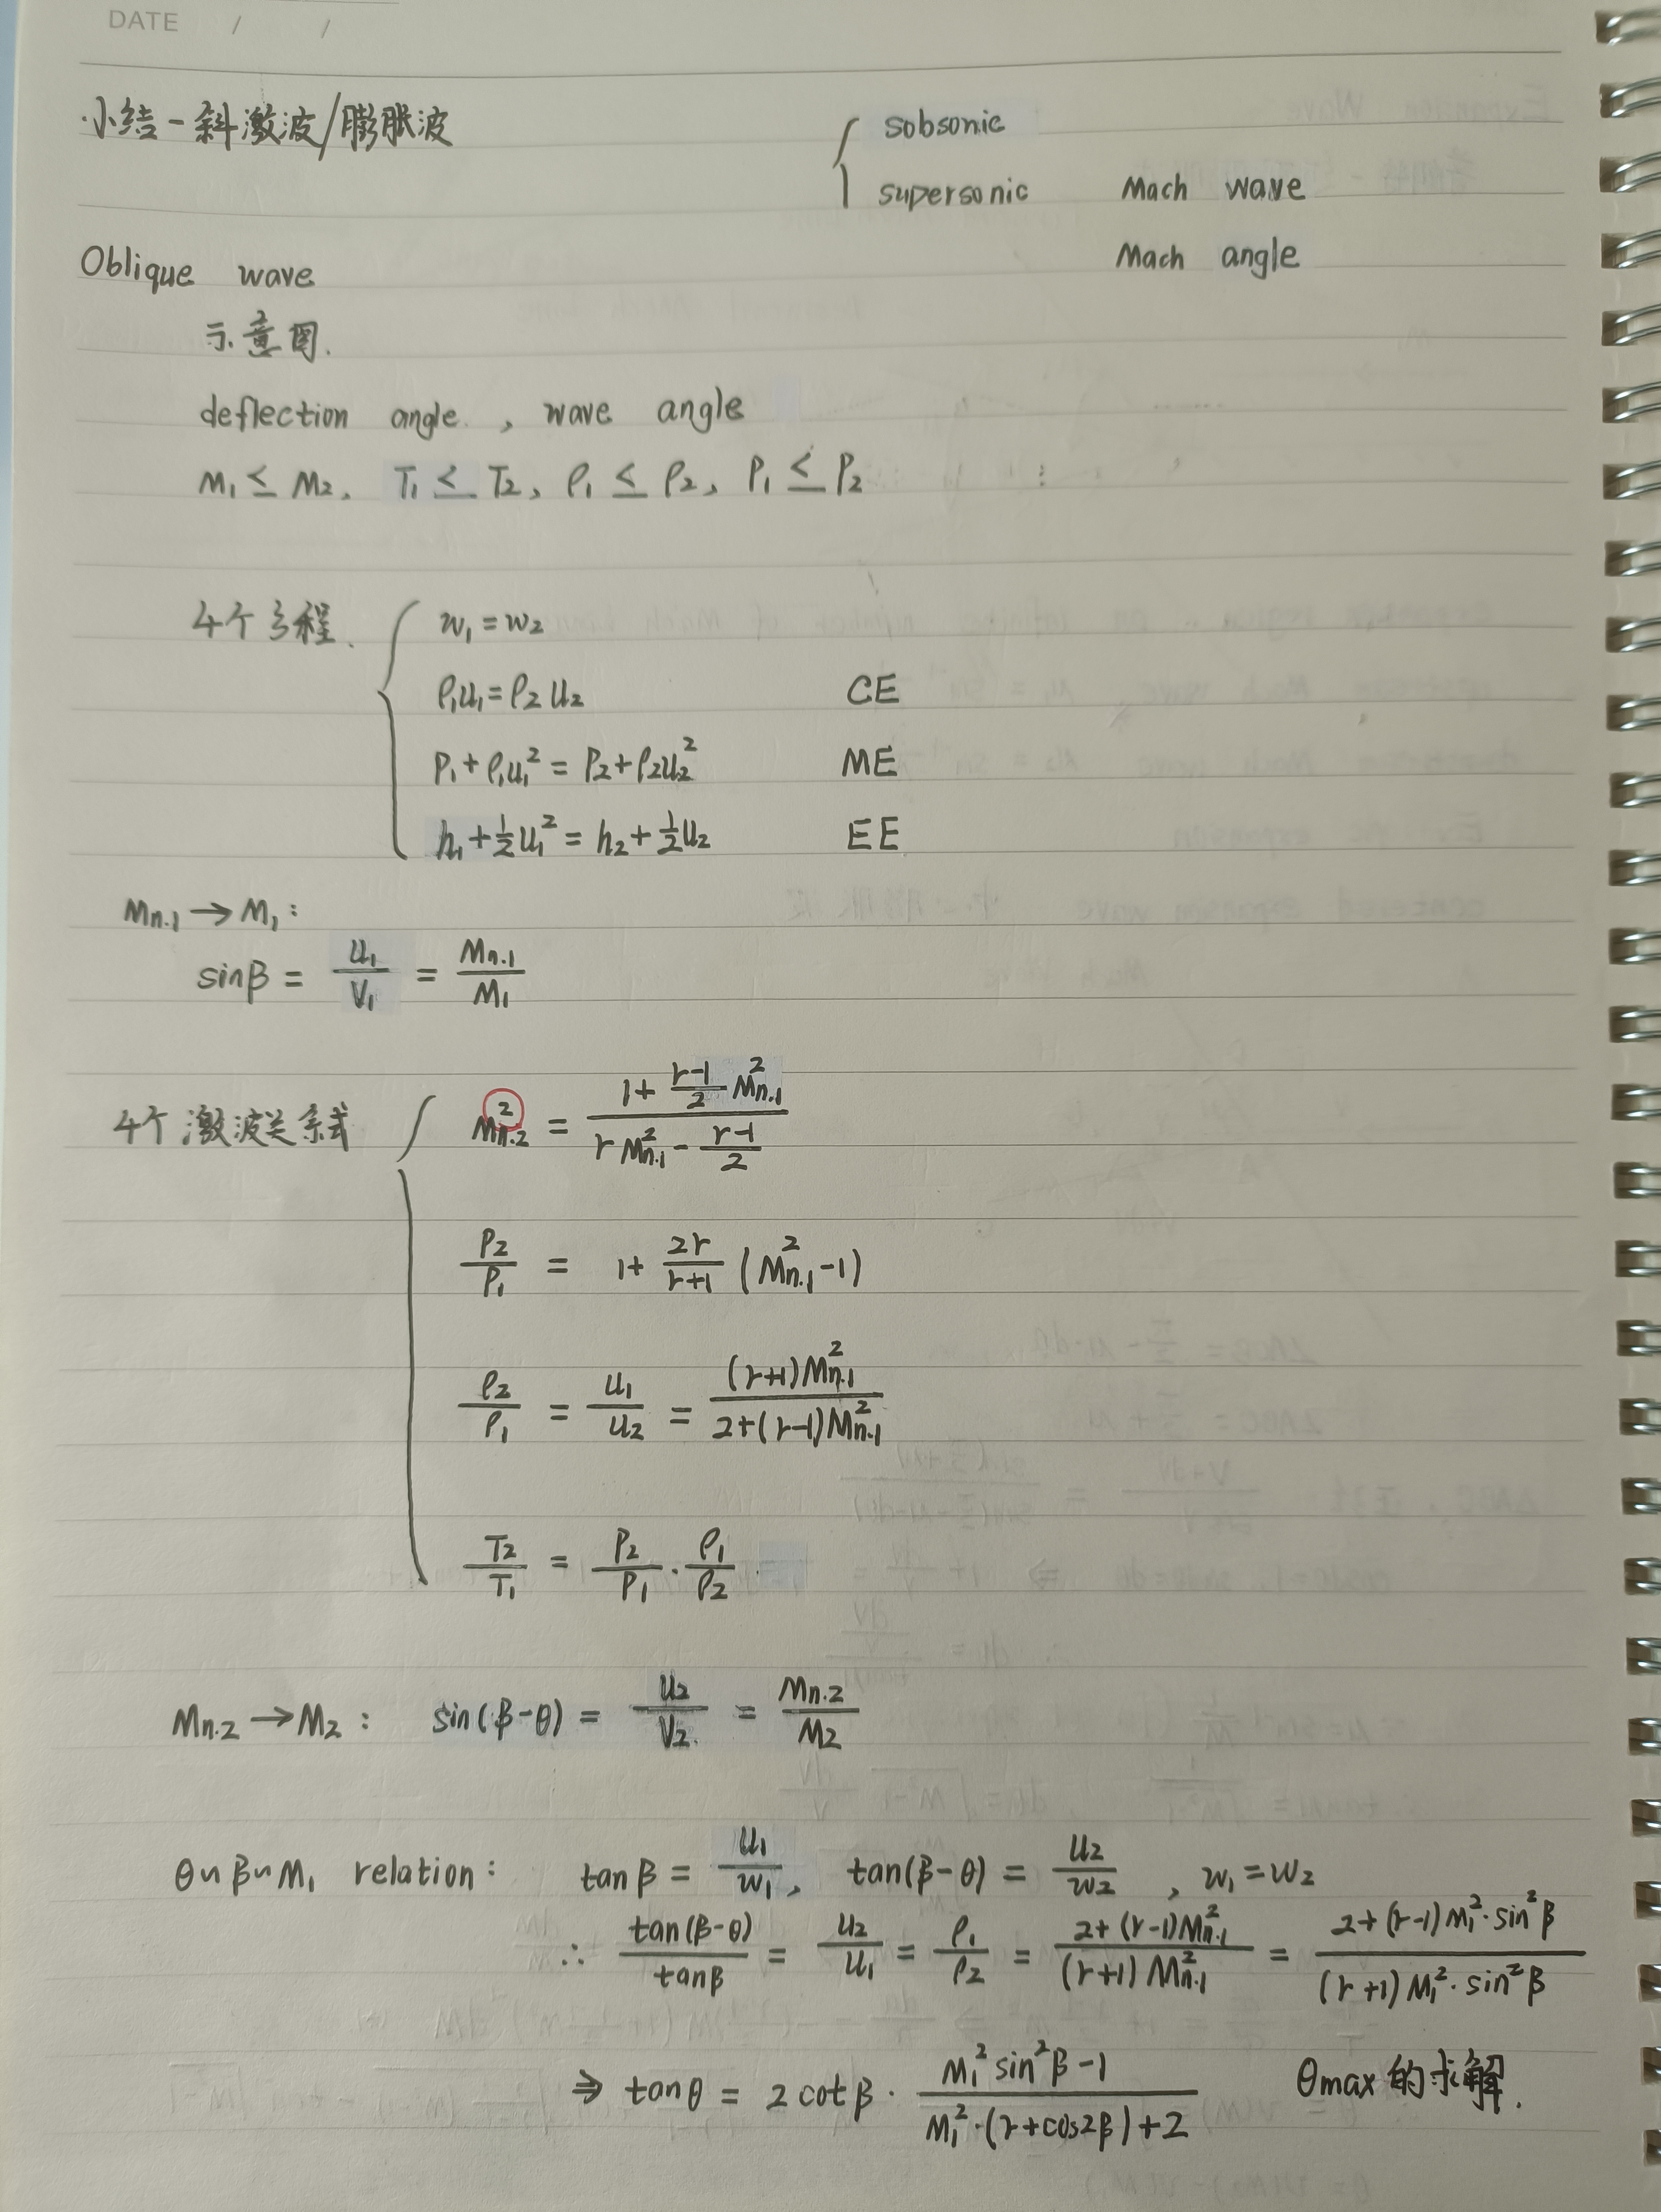 DATE / /
小结-斜激波/膨胀波
{ sobsonic
supersonic Mach wave
Mach angle
Oblique wave
示意图.
deflection angle, wave angle
M₁ ≤ M₂, T₁ ≤ T₂, ρ₁ ≤ ρ₂, P₁ ≤ P₂
4个方程. { w₁ = w₂
ρ₁u₁ = ρ₂u₂ CE
P₁ + ρ₁u₁² = P₂ + ρ₂u₂² ME
h₁ + ½u₁² = h₂ + ½u₂ EE
Mn.1 → M₁:
sinβ = u₁/V₁ = Mn.1/M₁
4个激波关系式 { Mn.2² = (1 + (r-1)/2 Mn.1²)/(r Mn.1² - (r-1)/2)
P₂/P₁ = 1 + 2r/(r+1) (Mn.1² - 1)
ρ₂/ρ₁ = u₁/u₂ = (r+1)Mn.1²/(2+(r-1)Mn.1²)
T₂/T₁ = P₂/P₁ · ρ₁/ρ₂.
Mn.2 → M₂: sin(β-θ) = u₂/V₂ = Mn.2/M₂
θ~β~M₁ relation: tanβ = u₁/w₁, tan(β-θ) = u₂/w₂, w₁ = w₂
∴ tan(β-θ)/tanβ = u₂/u₁ = ρ₁/ρ₂ = (2+(r-1)Mn.1²)/((r+1)Mn.1²) = (2+(r-1)M₁²·sin²β)/((r+1)M₁²·sin²β)
⇒ tanθ = 2cotβ · (M₁²sin²β-1)/(M₁²·(r+cos2β)+2) θmax的求解.